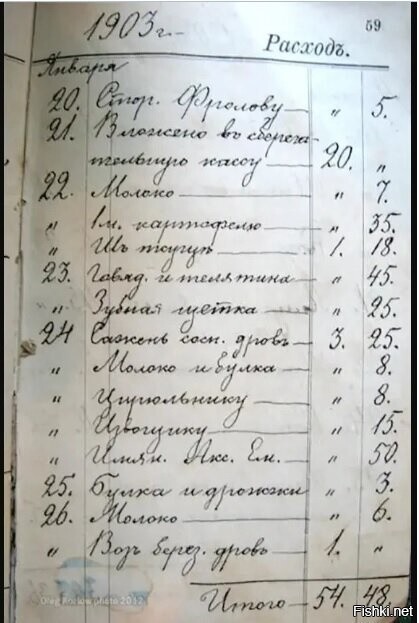 59
1903 г.
Расходъ.
Января
20. Стор. Фролову — " 5.
21. Вложено въ сберега-
тельную кассу — 20. "
22. Молоко — " 7.
" 1 м. картофелю — " 35.
" 1. 18.
23. Говяд. и телятина — " 45.
" Зубная щетка — " 25.
24 Сажень сосн. дровъ — 3. 25.
" Молоко и булка — " 8.
" Цирюльнику — " 8.
" Извощику — " 15.
" Имян. Акс. Ем. — " 50.
25. Булка и дрожжи " 3.
26. Молоко — " 6.
" Возъ берез. дровъ — 1. "
Итого — 54. 48.
Oleg Kozlow photo 2012
Fishki.net